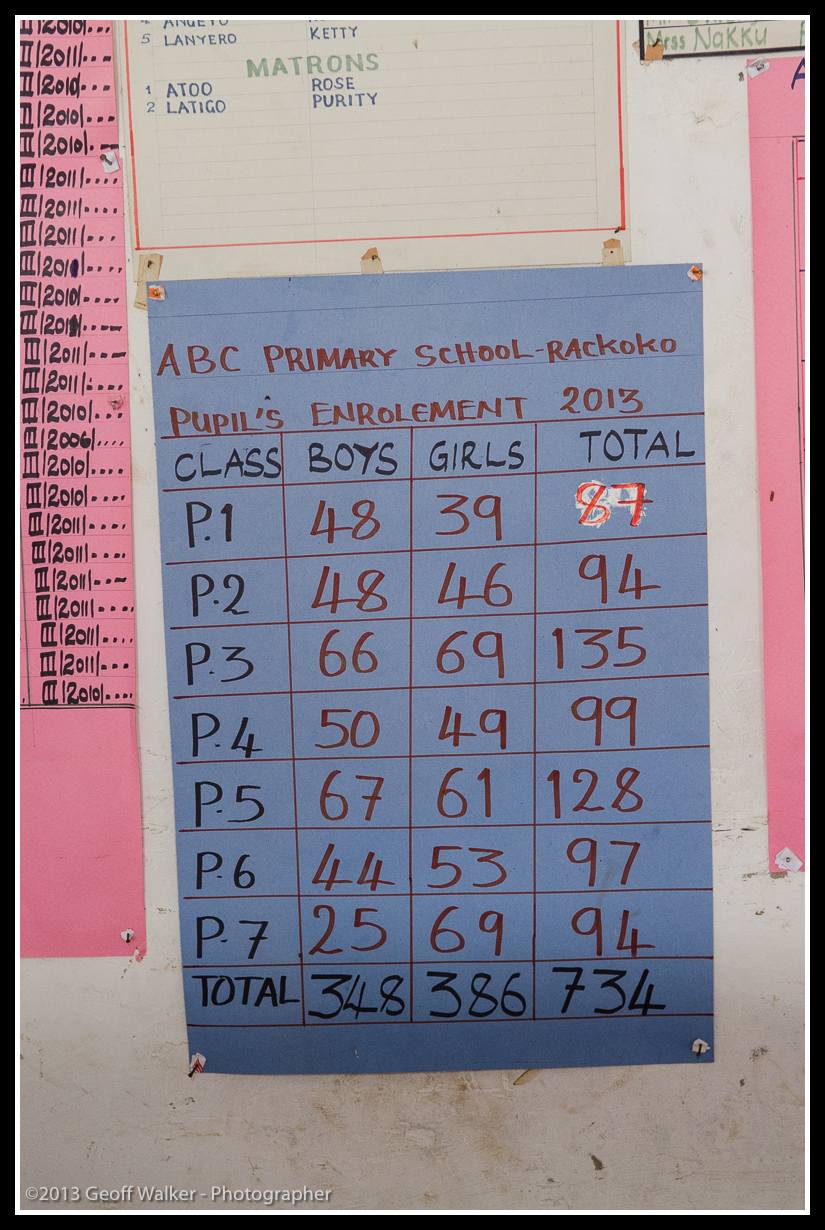 5 LANYERO KETTY
MATRONS
1 ATOO ROSE
2 LATIGO PURITY
Mrss Nakku
2010/...
2011/...
2010/...
2010/...
2010/...
2011/....
2011/....
2011/...
2010/....
2010/....
2011/....
2011/....
2011/....
2010/...
2006/....
2010/....
2010/....
2011/....
2011/....
2011/....
2011/....
2011/....
2011/...
2010/....
ABC PRIMARY SCHOOL-RACKOKO
PUPIL'S ENROLEMENT 2013
CLASS BOYS GIRLS TOTAL
P.1 48 39 87
P.2 48 46 94
P.3 66 69 135
P.4 50 49 99
P.5 67 61 128
P.6 44 53 97
P.7 25 69 94
TOTAL 348 386 734
©2013 Geoff Walker - Photographer